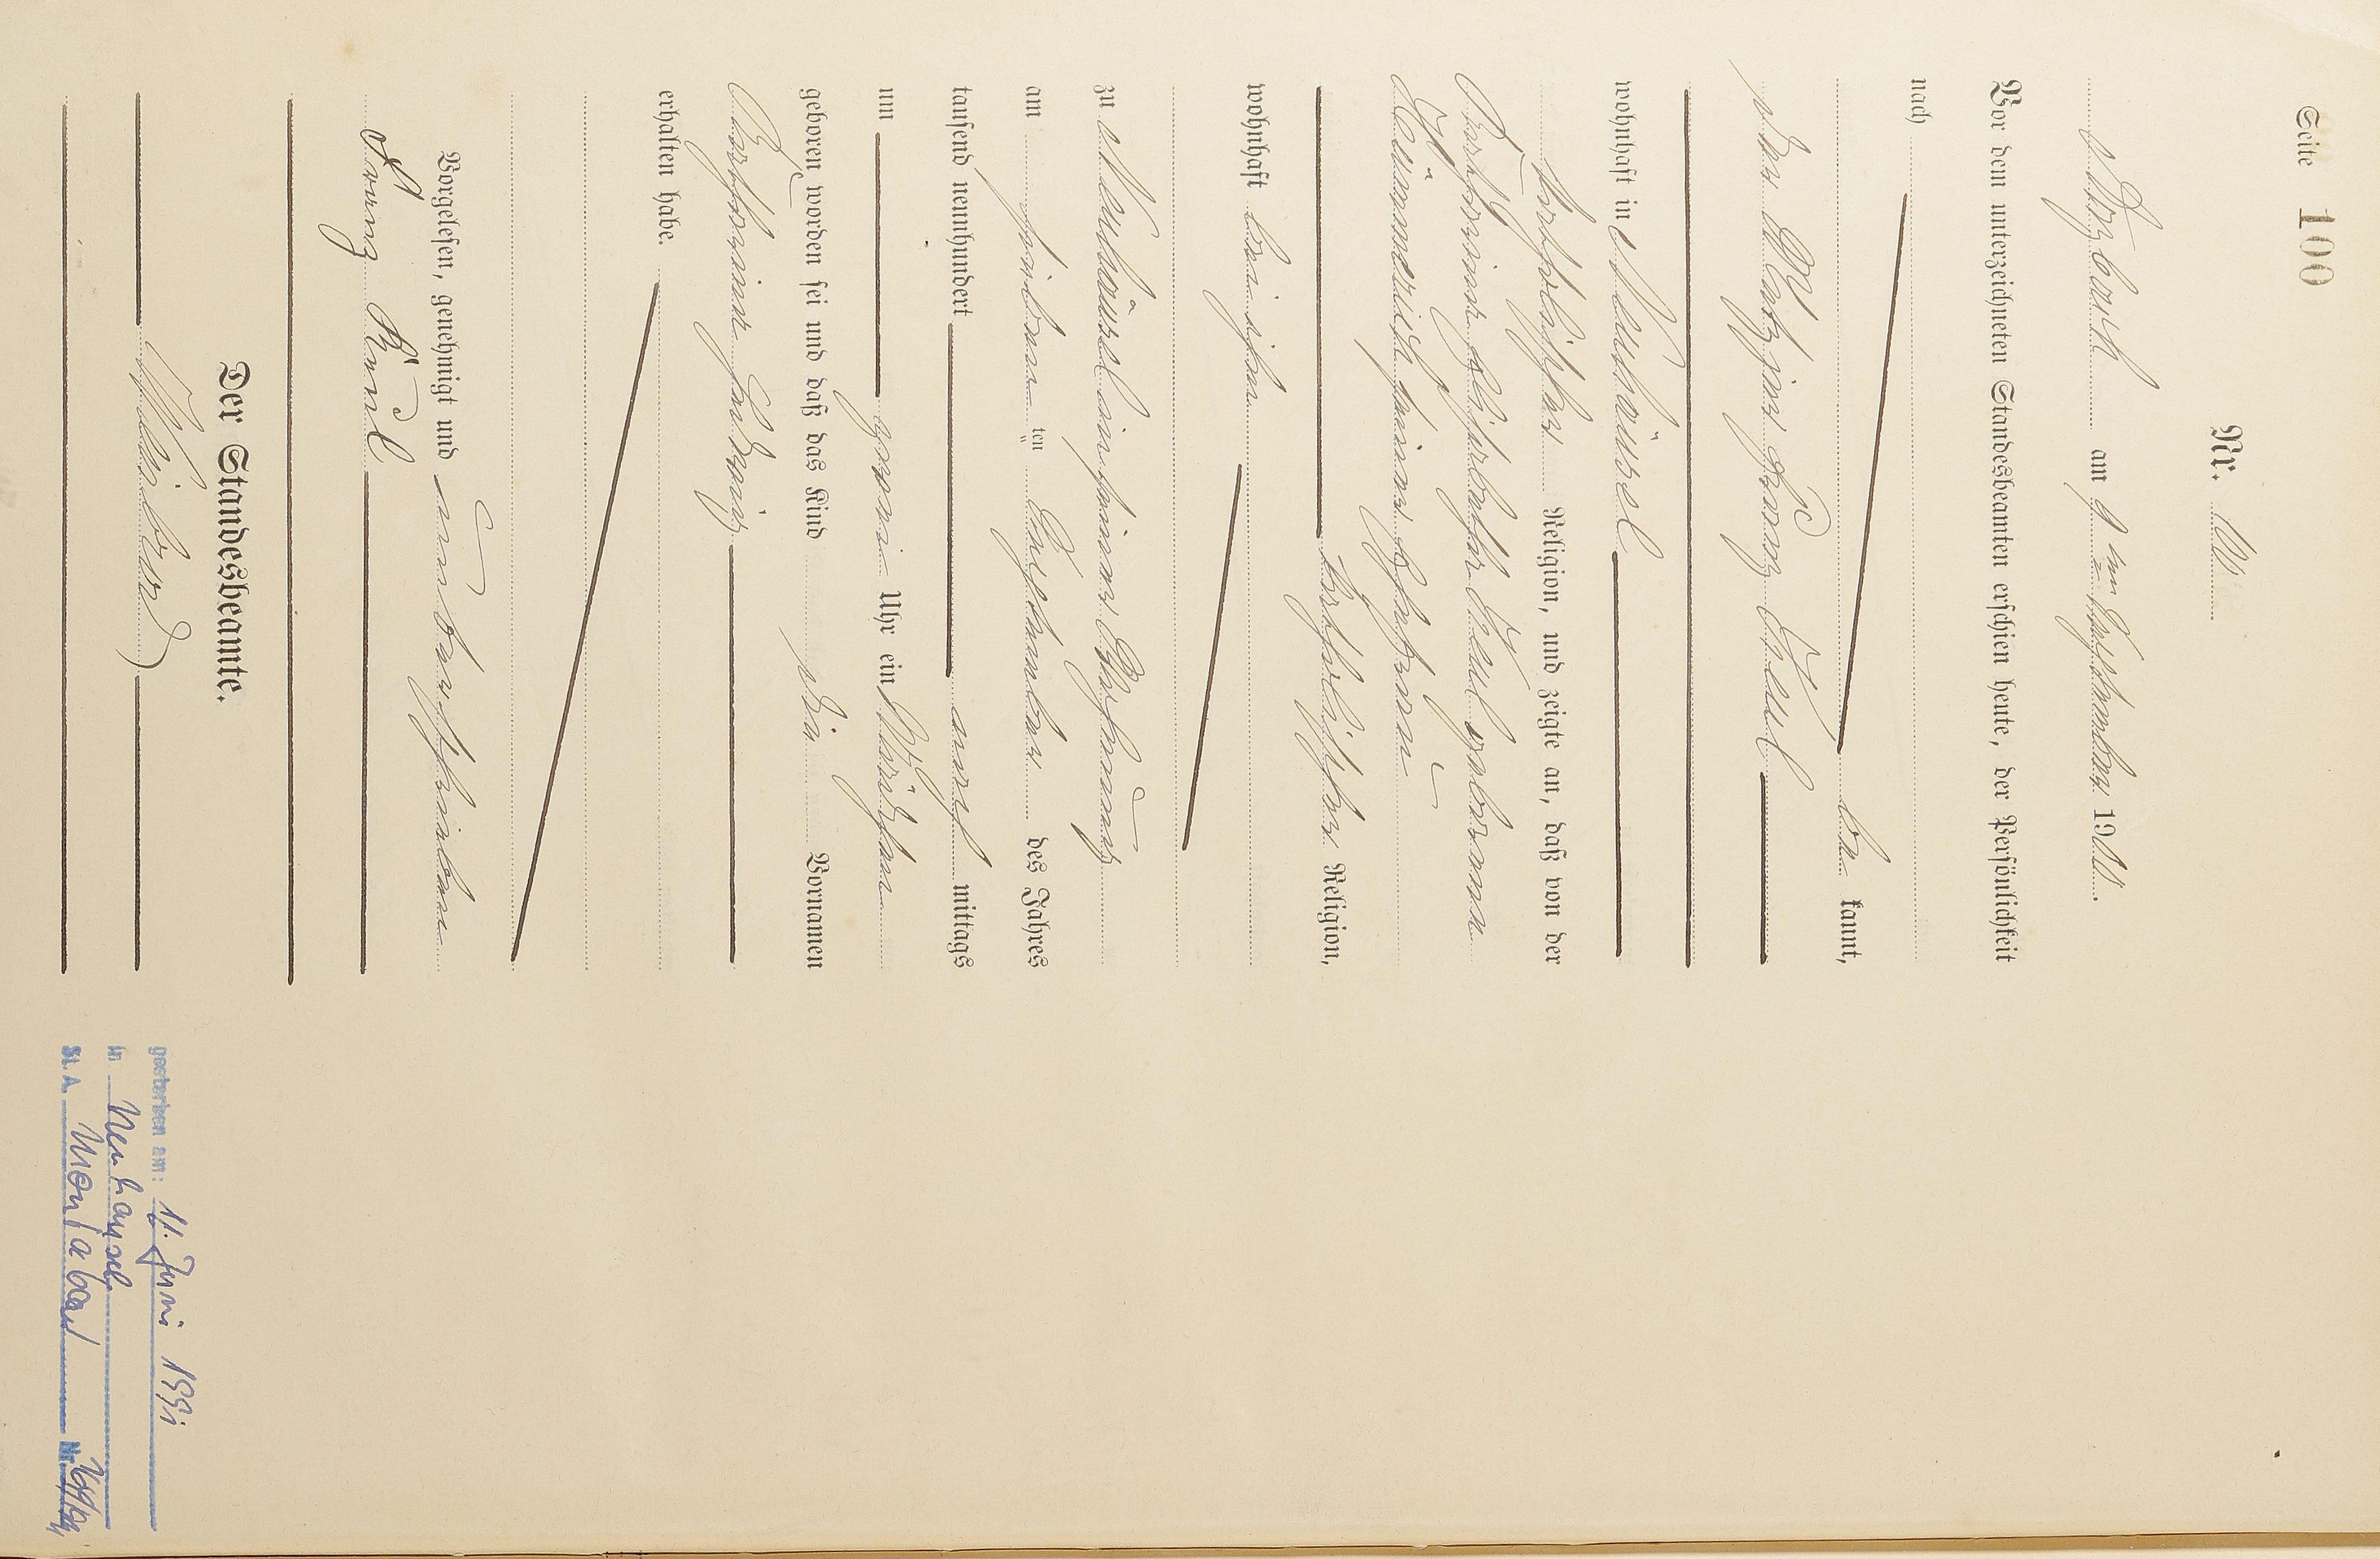 Seite 100
Nr.
Arzbach am 9ten September 1900.
Vor dem unterzeichneten Standesbeamten erschien heute, der Persönlichkeit
nach
be kannt,
der Metzger Franz Keul
wohnhaft in Neuhäusel
katholischer Religion, und zeigte an, daß von der
Katharina Elisabetha Keul geborenen
Hümmerich seiner Ehefrau
katholischer Religion,
wohnhaft bei ihm
zu Neuhäusel in seiner Wohnung
am siebenten ten September des Jahres
tausend neunhundert nach mittags
um zwei Uhr ein Mädchen
geboren worden sei und daß das Kind die Vornamen
Katharina Hedwig
erhalten habe.
Vorgelesen, genehmigt und unterschrieben
Franz Keul
Der Standesbeamte.
gestorben am: 11. Juni 1991
in Neuhäusel
St. A. Montabaur Nr.